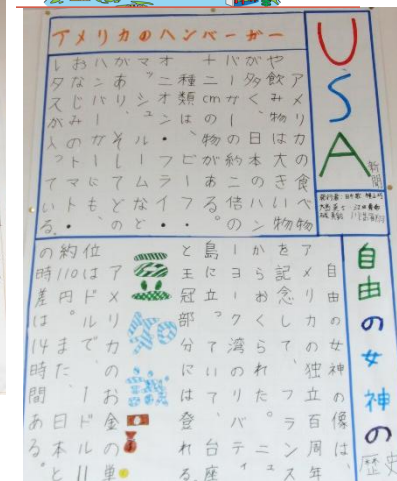 USA新聞
アメリカのハンバーガー
アメリカの食べ物
や飲み物は大きい物
が多く、日本のハン
バーガーの約二倍の
十二cmの物がある。
種類は、ビーフ・
オニオン・フライ・
マッシュルームなど
があり、そしてどの
ハンバーガーにも、
おなじみのトマト・
レタスが入っている。
自由の女神の歴史
自由の女神の像は、
アメリカの独立百周年
を記念して、フランス
からおくられた。ニュ
ーヨーク湾のリバティ
島に立っていて、台座
と王冠部分には登れる。
豆知識
アメリカのお金の単
位はドルで、一ドル=
約110円。また、日本と
の時差は14時間ある。